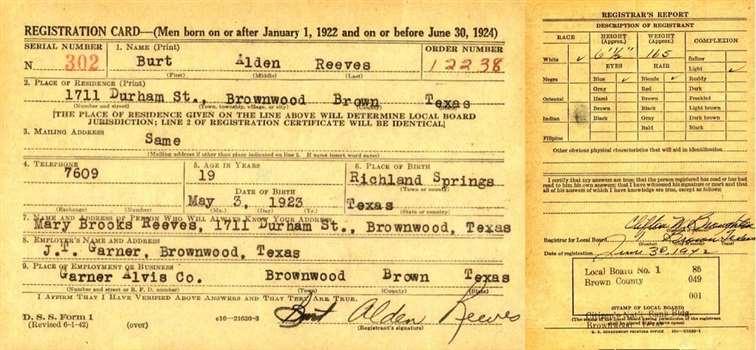 REGISTRATION CARD—(Men born on or after January 1, 1922 and on or before June 30, 1924)
SERIAL NUMBER 1. NAME (Print) ORDER NUMBER
N 302 Burt Alden Reeves 12238
(First) (Middle) (Last)
2. PLACE OF RESIDENCE (Print)
1711 Durham St., Brownwood Brown Texas
(Number and street) (Town, township, village, or city) (County) (State)
[THE PLACE OF RESIDENCE GIVEN ON THE LINE ABOVE WILL DETERMINE LOCAL BOARD
JURISDICTION; LINE 2 OF REGISTRATION CERTIFICATE WILL BE IDENTICAL]
3. MAILING ADDRESS
Same
(Mailing address if other than place indicated on line 2. If same insert word same)
4. TELEPHONE 5. AGE IN YEARS 6. PLACE OF BIRTH
7609 19 Richland Springs
(Town or county)
DATE OF BIRTH
May 3, 1923 Texas
(Exchange) (Number) (Mo.) (Day) (Yr.) (State or country)
7. NAME AND ADDRESS OF PERSON WHO WILL ALWAYS KNOW YOUR ADDRESS
Mary Brooks Reeves, 1711 Durham St., Brownwood, Texas
8. EMPLOYER'S NAME AND ADDRESS
J.T. Garner, Brownwood, Texas
9. PLACE OF EMPLOYMENT OR BUSINESS
Garner Alvis Co. Brownwood Brown Texas
(Street or R. F. D. number) (Town) (County) (State)
I AFFIRM THAT I HAVE VERIFIED ABOVE ANSWERS AND THAT THEY ARE TRUE.
D. S. S. Form 1
(Revised 6-1-42) (over) c16—21630-2 Burt Alden Reeves
(Registrant's signature)
REGISTRAR'S REPORT
DESCRIPTION OF REGISTRANT
RACE HEIGHT (Approx.) WEIGHT (Approx.) COMPLEXION
White ✓ 6' ½" 165 Sallow
EYES HAIR Light ✓
Negro Blue ✓ Blonde ✓ Ruddy
Gray Red Dark
Oriental Hazel Brown Freckled
Brown Black Light brown
Indian Black Gray Dark brown
Bald Black
Filipino
Other obvious physical characteristics that will aid in identification
I certify that my answers are true; that the person registered has read or has had
read to him his own answers; that I have witnessed his signature or mark and that
all of his answers of which I have knowledge are true, except as follows:
Registrar for Local Board
Date of registration June 30, 1942
Local Board No. 1 85
Brown County 049
001
(STAMP OF LOCAL BOARD)
Citizen's Nat'l Bank Bldg.
Brownwood Texas